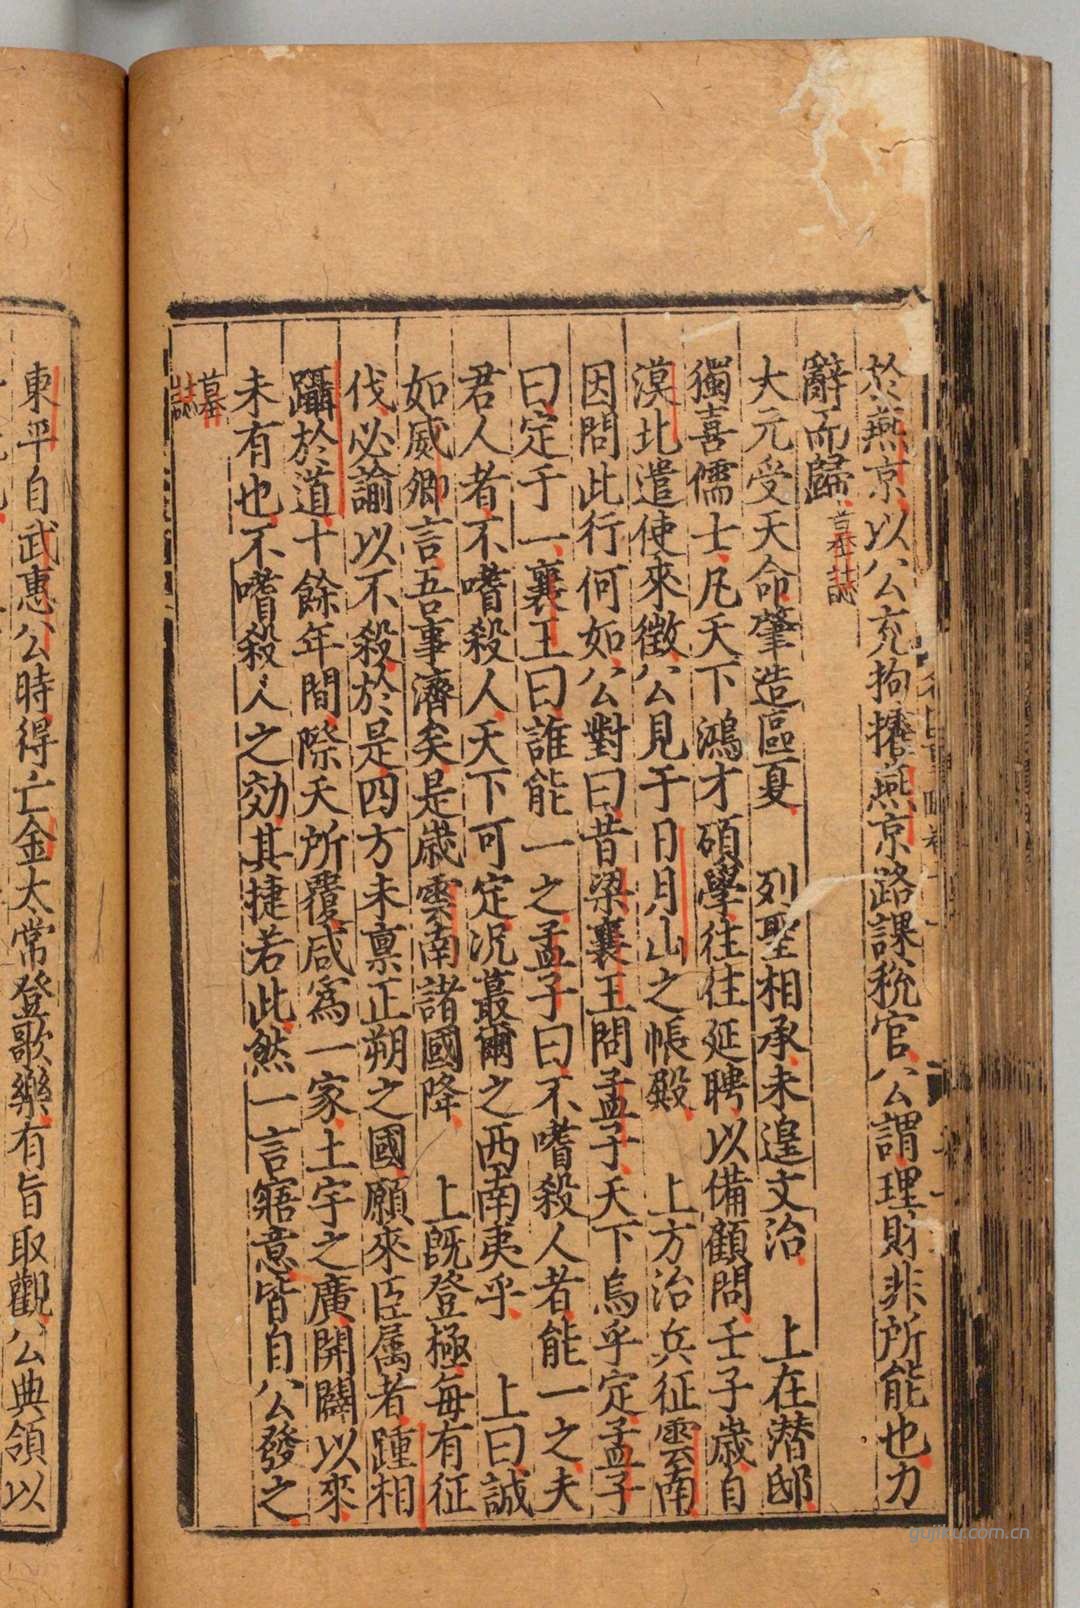 於燕京以公充拘搉燕京路課稅官公謂理財非所能也力
辭而歸墓誌
大元受天命肇造區夏　列聖相承未遑文治　上在潛邸
獨喜儒士凡天下鴻才碩學往往延聘以備顧問壬子歲自
漠北遣使來徵公見于日月山之帳殿　上方治兵征雲南
因問此行何如公對曰昔梁襄王問孟子天下烏乎定孟子
曰定于一襄王曰誰能一之孟子曰不嗜殺人者能一之夫
君人者不嗜殺人天下可定况蕞爾之西南夷乎　上曰誠
如威卿言吾事濟矣是歲雲南諸國降　上既登極每有征
伐必諭以不殺於是四方未禀正朔之國願來臣属者踵相
躡於道十餘年間際天所覆咸爲一家土宇之廣開闢以來
未有也不嗜殺人之効其捷若此然一言寤意皆自公發之
墓誌
東平自武惠公時得亡金太常登歌樂有旨取觀公典領以
gujiku.com.cn